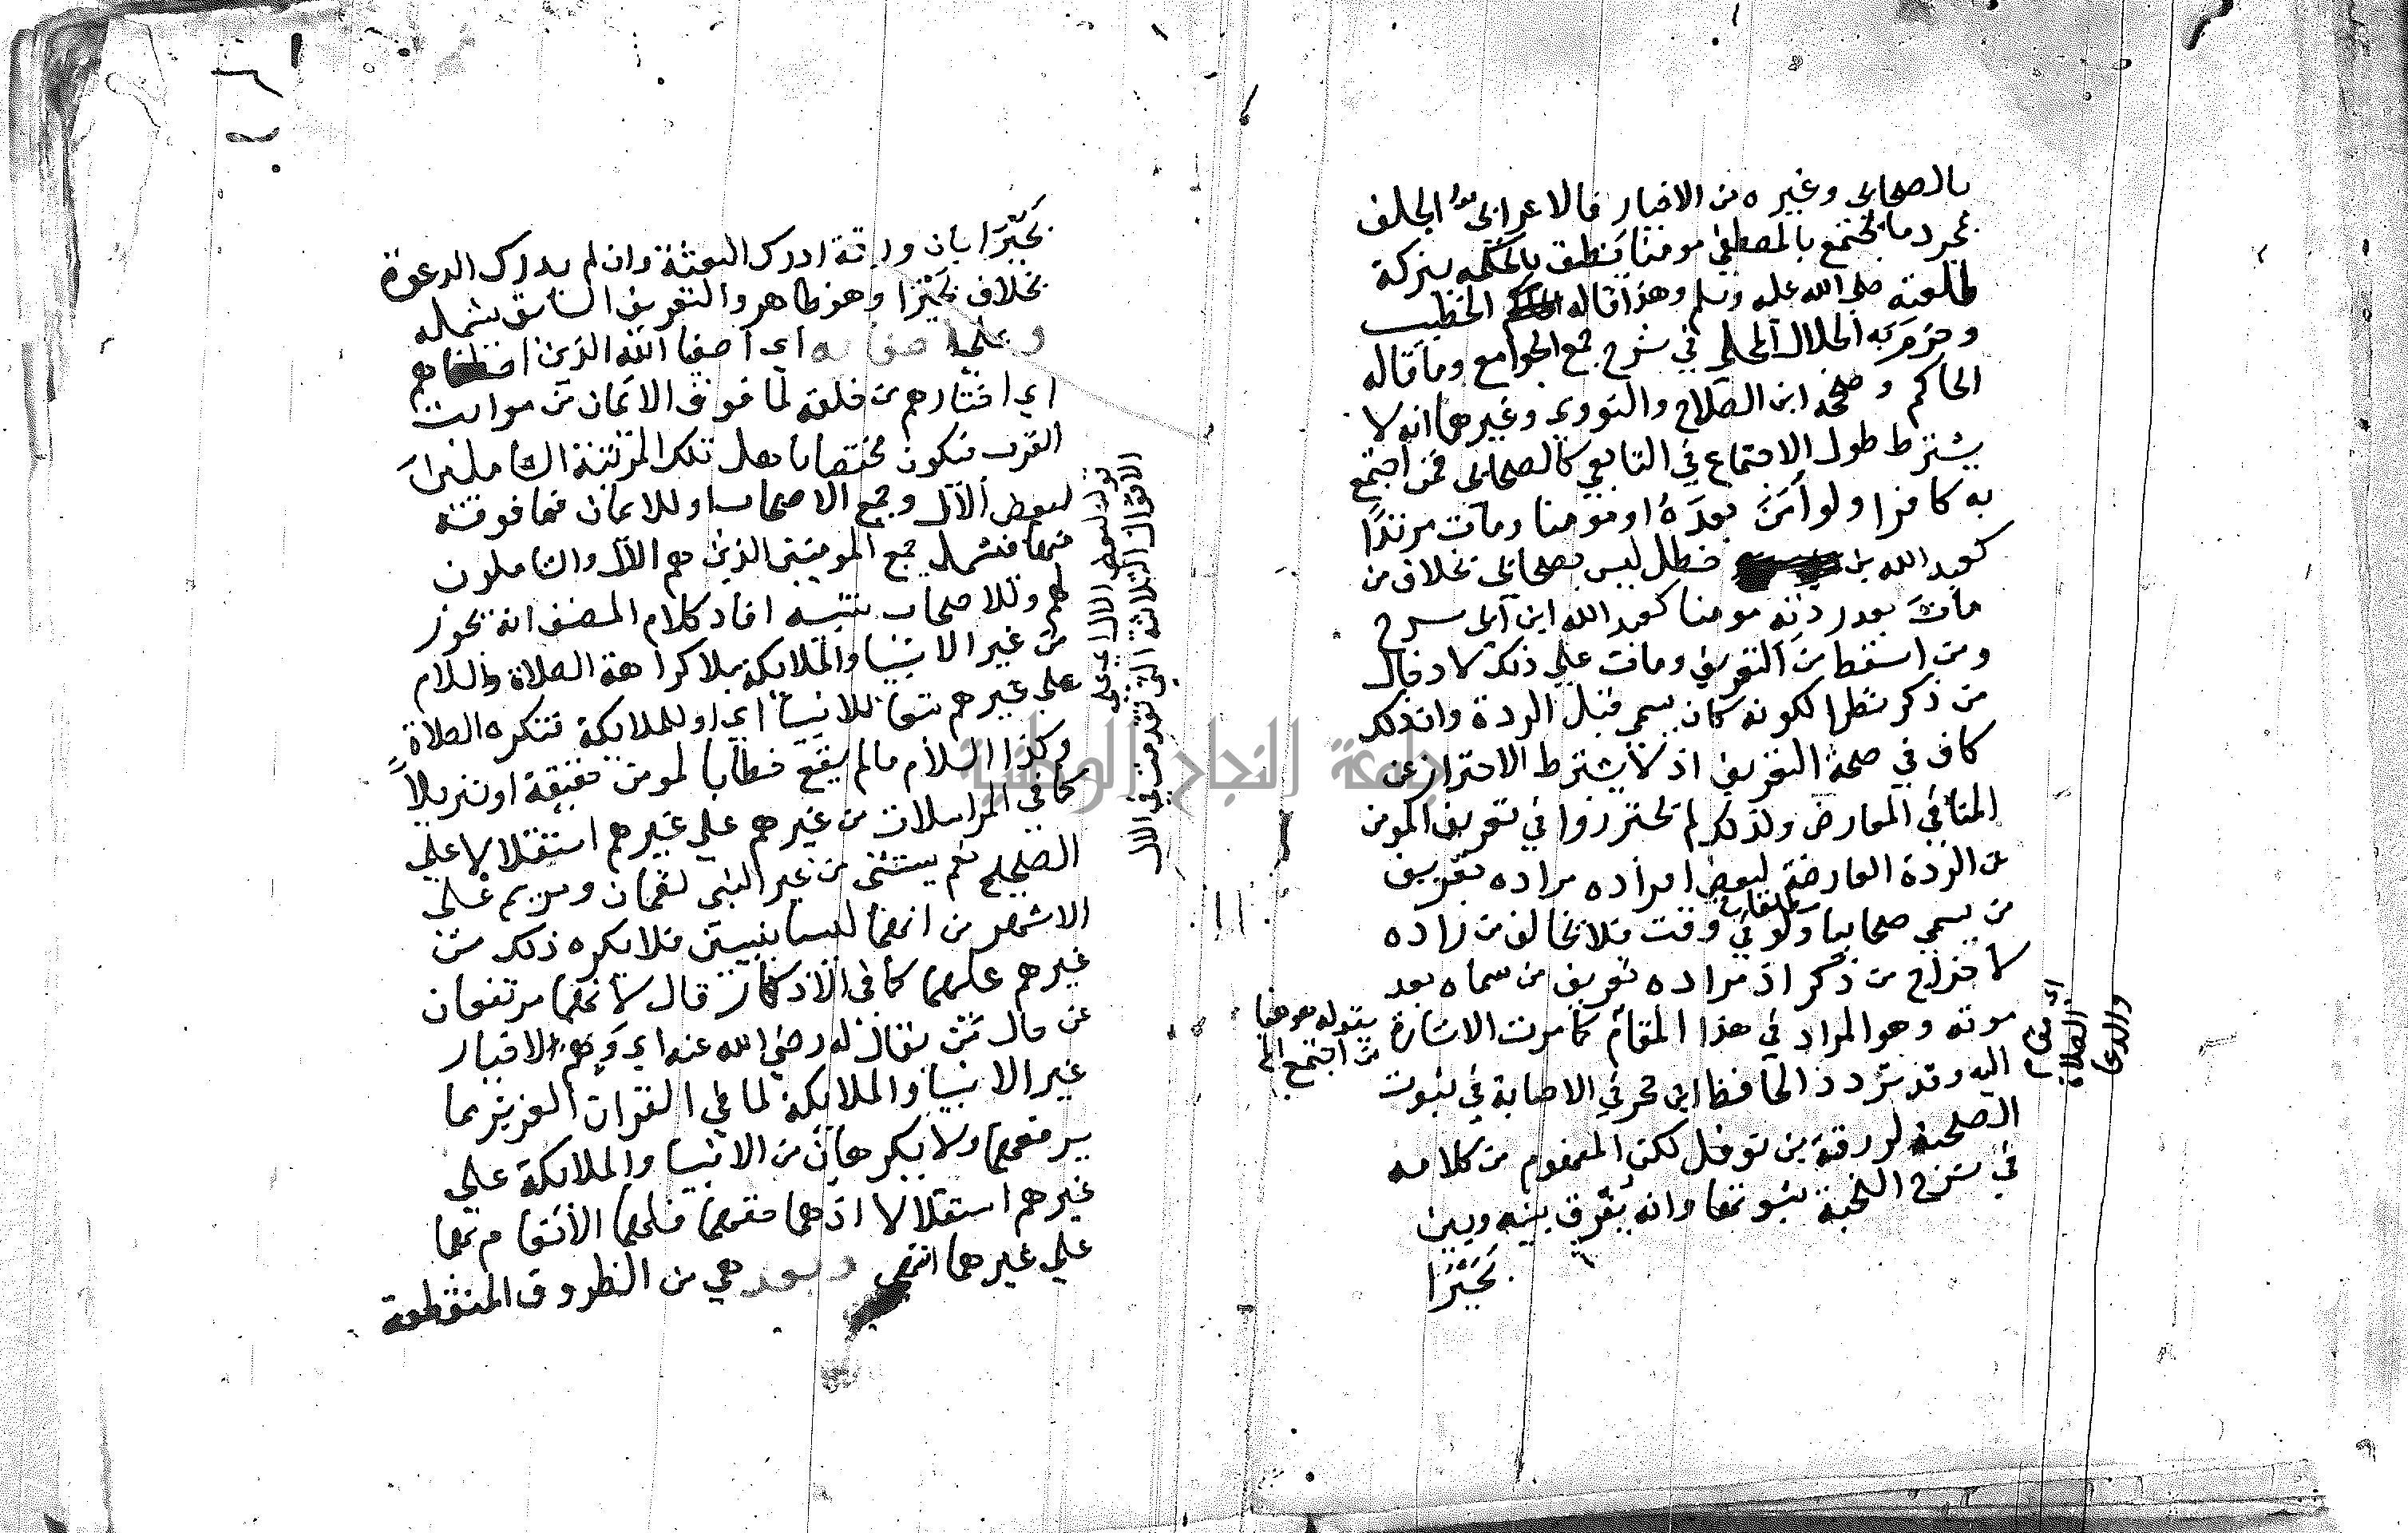 بالصحابي وغيره من الاخيار فالاعرابي الجلف
بمجرد ما يجتمع بالمصطفي مومنا ينطق بالحكمة ببركة
طلعته صلي الله عليه وسلم وهذا قاله الخطيب
وجزم به الجلال المحلي في شرح جمع الجوامع وما قاله
الحاكم وصححه ابن الصلاح والنووي وغيرهما انه لا
يشترط طول الاجتماع في التابعي كالصحابي فمن اجتمع
به كافرا ولو أمن بعده او مومنا ومات مرتدا
كعبد الله بن خطل ليس بصحابي بخلاف من
مات بعد ردته مومنا كعبد الله ابن ابي سرح
ومن اسقط من التعريف ومات علي ذلك لادخال
من ذكر نظرا لكونه كان يسمي قبل الردة وان ذلك
كاف في صحة التعريف اذ لا يشترط الاحتراز عن
المنافي العارض ولذلك لم يحترزوا في تعريف المومن
عن الردة العارضة لبعض افراده مراده تعريف
من يسمي صحابيا ولو في وقت فلا تخالف من زاده
لاخراج من ذكر اذ مراده تعريف من سماه بعد
موته وهو المراد في هذا المقام كما مرت الاشارة
اليه وقد تردد الحافظ ابن حجر في الاصابة في ثبوت
الصحبة لورقة بن نوفل لكن المفهوم من كلامه
في شرح النخبة ثبوتها وانه يفرق بينه وبين
بحيرا
بقوله هو هنا
من اجتمع الخ
اي في
الصلاة
والدعا
بحيرا بان ورقة ادرك البعثة وان لم يدرك الدعوة
بخلاف بحيرا وهو ظاهر والتعريف السابق يشمله
وعلي اصفيايه اي اصفيا الله الذين اصطفاهم
اي اختارهم من خلقه لما فوق الايمان من مراتب
القرب فيكون مختصا باهل تلك المرتبة الشاملين
لبعض الآل وجمع الاصحاب او للايمان فما فوقه
فيشمل جمع المومنين الذين هم الآل والشاملون
لهم وللاصحاب تنبيه افاد كلام المصنف انه يجوز
من غير الانبيا والملايكة بلا كراهة الصلاة والسلام
علي غيرهم تبعا للانبيا اي او للملايكة فتكره الصلاة
وكذا السلام ما لم يقع خطابا لمومن حقيقة او تنزيلاً
كما في المراسلات من غيرهم علي غيرهم استقلالا علي
الصحيح نعم يستثني من غير النبي لقمان ومريم علي
الاشهر من انهما ليسا بنبيين فلا يكره ذلك من
غيرهم عليهما كما في الاذكار قال لانهما مرتفعان
عن حال من يقال له رضي الله عنه اي وهم الاخيار
غير الانبيا والملايكة لما في القران العزيز مما
يرفعهما ولا يكرهان من الانبيا والملايكة علي
غيرهم استقلالا اذ هما حقهما فلهما الانعام بهما
علي غيرهما انتهي وبعد هي من الظروف المنقطعة
الاقوال الثلاثة التي تقدمت في الال